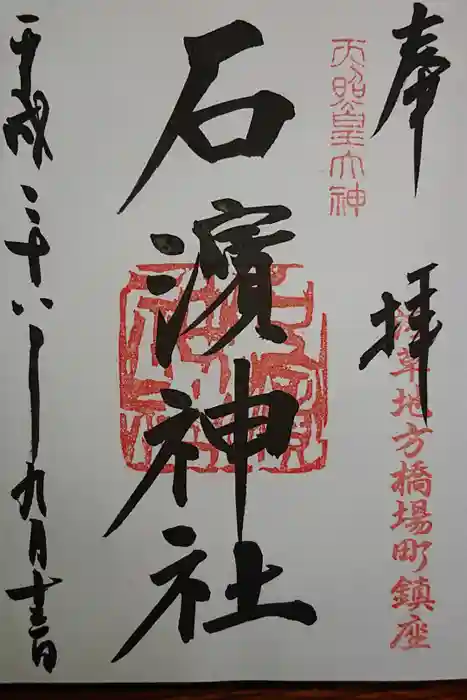 奉拝
天照皇大神
浅草地方橋場町鎮座
石濱神社
平成二十八年九月十三日